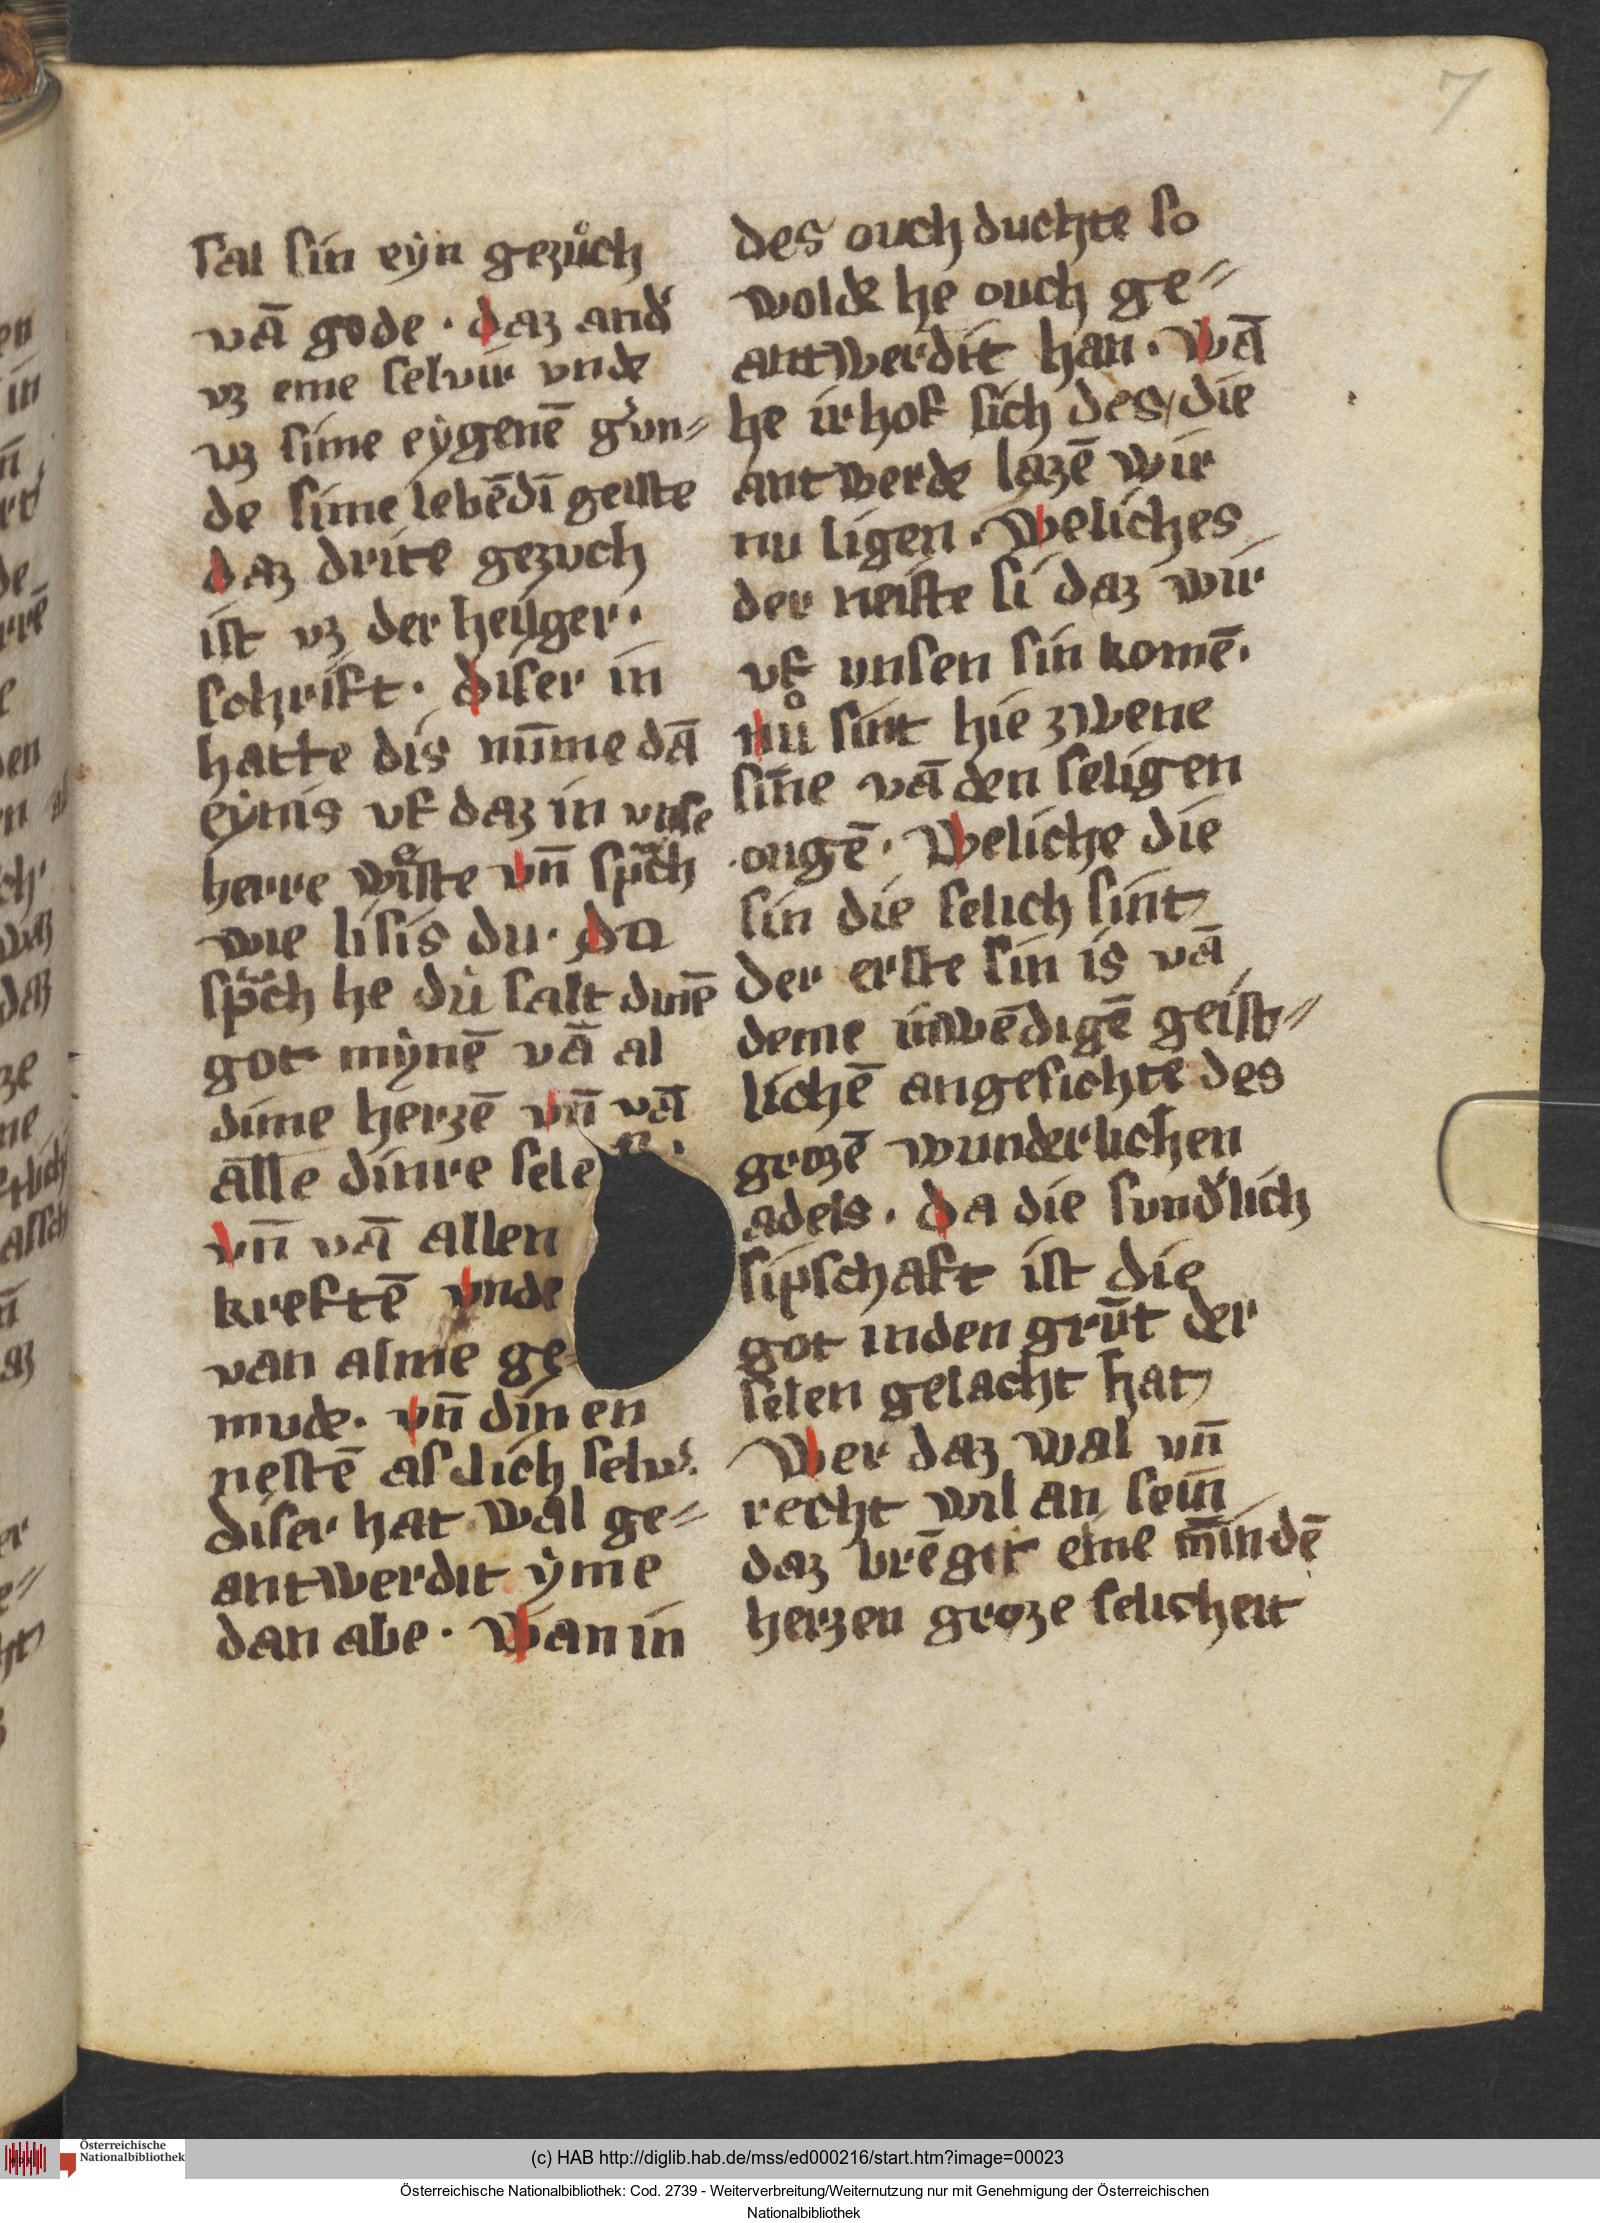 7
sal sin eẏn gezůch
vā gode · daz and᷑
vz eme seluir vnde
vz sime eẏgenē g᷑un⸗
de sime lebēdī geiste
daz drite gezvch
ist vz der heẏger ·
schrift · diser in
hatte dis nūme dā
eẏnis vf daz in vnse
herre wiste vn̄ sp̄ch
wie lisis du · do
sp̄ch he du salt dinē
got mẏnē vā al
dime herzē vn̄ vā
alle dinre sele
vn̄ vā allen
kreftē vnde
van alme ge⸗
mude · vn̄ din en
nestē as dich selu᷑.
diser hat wal ge⸗
antwerdit ẏme
dan abe · Wan in
des ouch duchte so
wolde he ouch ge⸗
antwerdit han · Wā
he irhof sich des / die
antwerde lazē wir
nu ligen · Weliches
der neiste si daz wir
vf vnsen sin komē ·
nů sint hie zwene
sīne vā den seligen
ougē · Weliche die
sin die selich sint
der erste sin is vā
deme inwēdigē geist⸗
lichē angesichte des
grozē wunderlichen
adels · da die sund᷑lich
sipschaft ist die
got inden grūt der
selen gelacht hat
Wer daz wal vn̄
recht wil an sein̄
daz brēgit eime mīndē
herzen groze selicheit
Österreichische
Nationalbibliothek
(c) HAB http://diglib.hab.de/mss/ed000216/start.htm?image=00023
Österreichische Nationalbibliothek: Cod. 2739 - Weiterverbreitung/Weiternutzung nur mit Genehmigung der Österreichischen
Nationalbibliothek